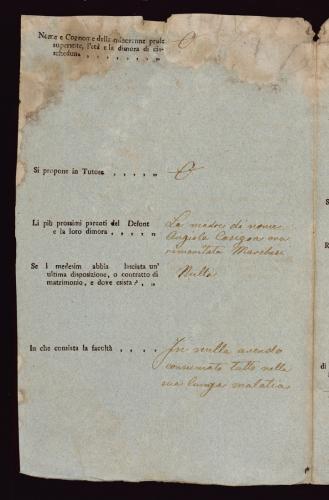 Nome e Cognome della minorenne prole
superstite, l'età e la dimora di cia-
scheduna. , , , , , , ,
Si propone in Tutore , , , , ,
Li più prossimi parenti del Defont
e la loro dimora, , , , , ,
La madre di nome
Angiola Casegon ora
rimaritata Marchesi
Se i medesim abbia lasciata un'
ultima disposizione, o contratto di
matrimonio, e dove esista? , ,
Nulla
In che consista la facoltà , , , ,
In nulla avendo
consumato tutto nella
sua lunga malatia